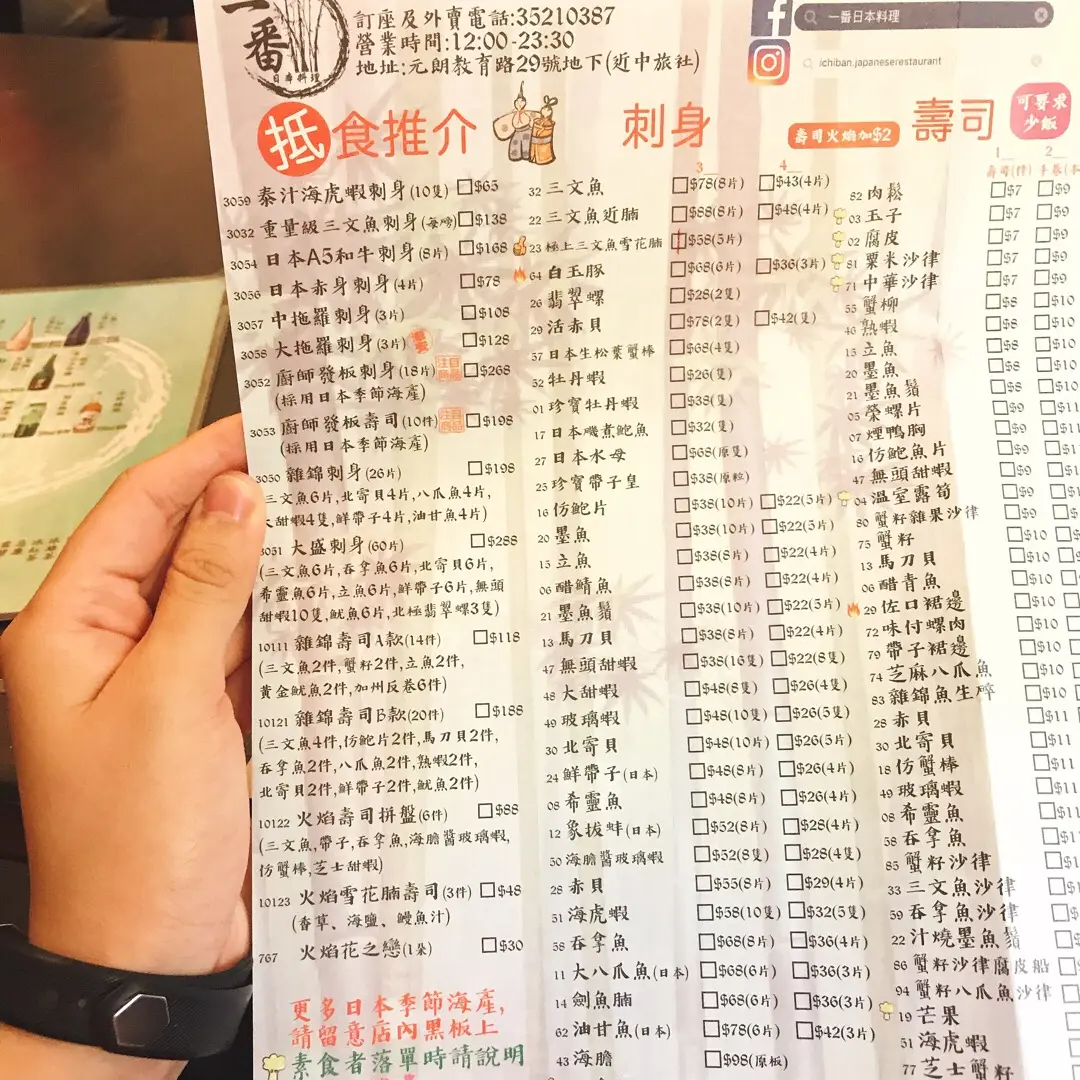 一番
日本料理
訂座及外賣電話:35210387
營業時間:12:00-23:30
地址:元朗教育路29號地下(近中旅社)
一番日本料理
ichiban.japaneserestaurant
抵食推介
3059 泰汁海虎蝦刺身(10隻) $65
3032 重量級三文魚刺身 $138
3054 日本A5和牛刺身(8片) $168
3056 日本赤身刺身(4片) $78
3057 中拖羅刺身(3片) $108
3058 大拖羅刺身(3片) $128
3052 廚師發板刺身(18片) $268
(採用日本季節海產)
3053 廚師發板壽司(10件) $198
(採用日本季節海產)
3050 雜錦刺身(26片) $198
三文魚6片,北寄貝4片,八爪魚4片,
大甜蝦4隻,鮮帶子4片,油甘魚4片)
3051 大盛刺身(60片) $288
(三文魚6片,吞拿魚6片,北寄貝6片,
希靈魚6片,立魚6片,鮮帶子6片,無頭
甜蝦10隻,魷魚6片,北極翡翠螺3隻)
10111 雜錦壽司A款(14件) $118
(三文魚2件,蟹籽2件,立魚2件,
黃金魷魚2件,加州反卷6件)
10121 雜錦壽司B款(20件) $188
(三文魚4件,仿鮑片2件,馬刀貝2件,
吞拿魚2件,八爪魚2件,熟蝦2件,
北寄貝2件,鮮帶子2件,魷魚2件)
10122 火焰壽司拼盤(6件) $88
(三文魚,帶子,吞拿魚,海膽醬玻璃蝦,
仿蟹棒,芝士甜蝦)
10123 火焰雪花腩壽司(3件) $48
(香草、海鹽、鰻魚汁)
767 火焰花之戀(1朵) $30
更多日本季節海產,
請留意店內黑板上
素食者落單時請說明
刺身
3_ 4_
32 三文魚 $78(8片) $43(4片)
22 三文魚近腩 $88(8片) $48(4片)
23 極上三文魚雪花腩 $58(5片)
64 白玉豚 $68(6片) $36(3片)
26 翡翠螺 $28(2隻)
29 活赤貝 $78(2隻) $42(隻)
57 日本生松葉蟹棒 $68(4隻)
52 牡丹蝦 $26(隻)
01 珍寶牡丹蝦 $38(隻)
17 日本磯煮鮑魚 $32(隻)
27 日本水母 $68(原隻)
25 珍寶帶子皇 $38(原粒)
16 仿鮑片 $38(10片) $22(5片)
20 墨魚 $38(10片) $22(5片)
15 立魚 $38(8片) $22(4片)
06 醋鯖魚 $38(8片) $22(4片)
21 墨魚鬚 $38(10片) $22(5片)
13 馬刀貝 $38(8片) $22(4片)
47 無頭甜蝦 $38(16隻) $22(8隻)
48 大甜蝦 $48(8隻) $26(4隻)
49 玻璃蝦 $48(10隻) $26(5隻)
30 北寄貝 $48(10片) $26(5片)
24 鮮帶子(日本) $48(8片) $26(4片)
08 希靈魚 $48(8片) $26(4片)
12 象拔蚌(日本) $52(8片) $28(4片)
50 海膽醬玻璃蝦 $52(8隻) $28(4隻)
28 赤貝 $55(8片) $29(4片)
51 海虎蝦 $58(10隻) $32(5隻)
58 吞拿魚 $68(8片) $36(4片)
11 大八爪魚(日本) $68(6片) $36(3片)
14 劍魚腩 $68(6片) $36(3片)
62 油甘魚(日本) $78(6片) $42(3片)
43 海膽 $98(原板)
壽司火焰加$2
壽司
可要求少飯
1_ 2_
壽司(件) 手卷(本
82 肉鬆 $7 $9
03 玉子 $7 $9
02 腐皮 $7 $9
81 粟米沙律 $7 $9
71 中華沙律 $7 $9
55 蟹柳 $8 $10
46 熟蝦 $8 $10
15 立魚 $8 $10
20 墨魚 $8 $10
21 墨魚鬚 $8 $10
05 榮螺片 $9
07 煙鴨胸 $9
16 仿鮑魚片 $9
47 無頭甜蝦 $9
04 溫室露筍 $9
80 蟹籽雜果沙律 $9
75 蟹籽 $10
13 馬刀貝 $10
06 醋青魚 $10
29 佐口裙邊 $10
72 味付螺肉 $10
79 帶子裙邊 $10
74 芝麻八爪魚 $10
83 雜錦魚生碎 $10
28 赤貝 $11
30 北寄貝 $11
18 仿蟹棒 $11
49 玻璃蝦 $11
08 希靈魚
58 吞拿魚
85 蟹籽沙律
33 三文魚沙律
59 吞拿魚沙律
22 汁燒墨魚鬚
86 蟹籽沙律腐皮船
94 蟹籽八爪魚沙律
19 芒果
51 海虎蝦
77 芝士蟹籽